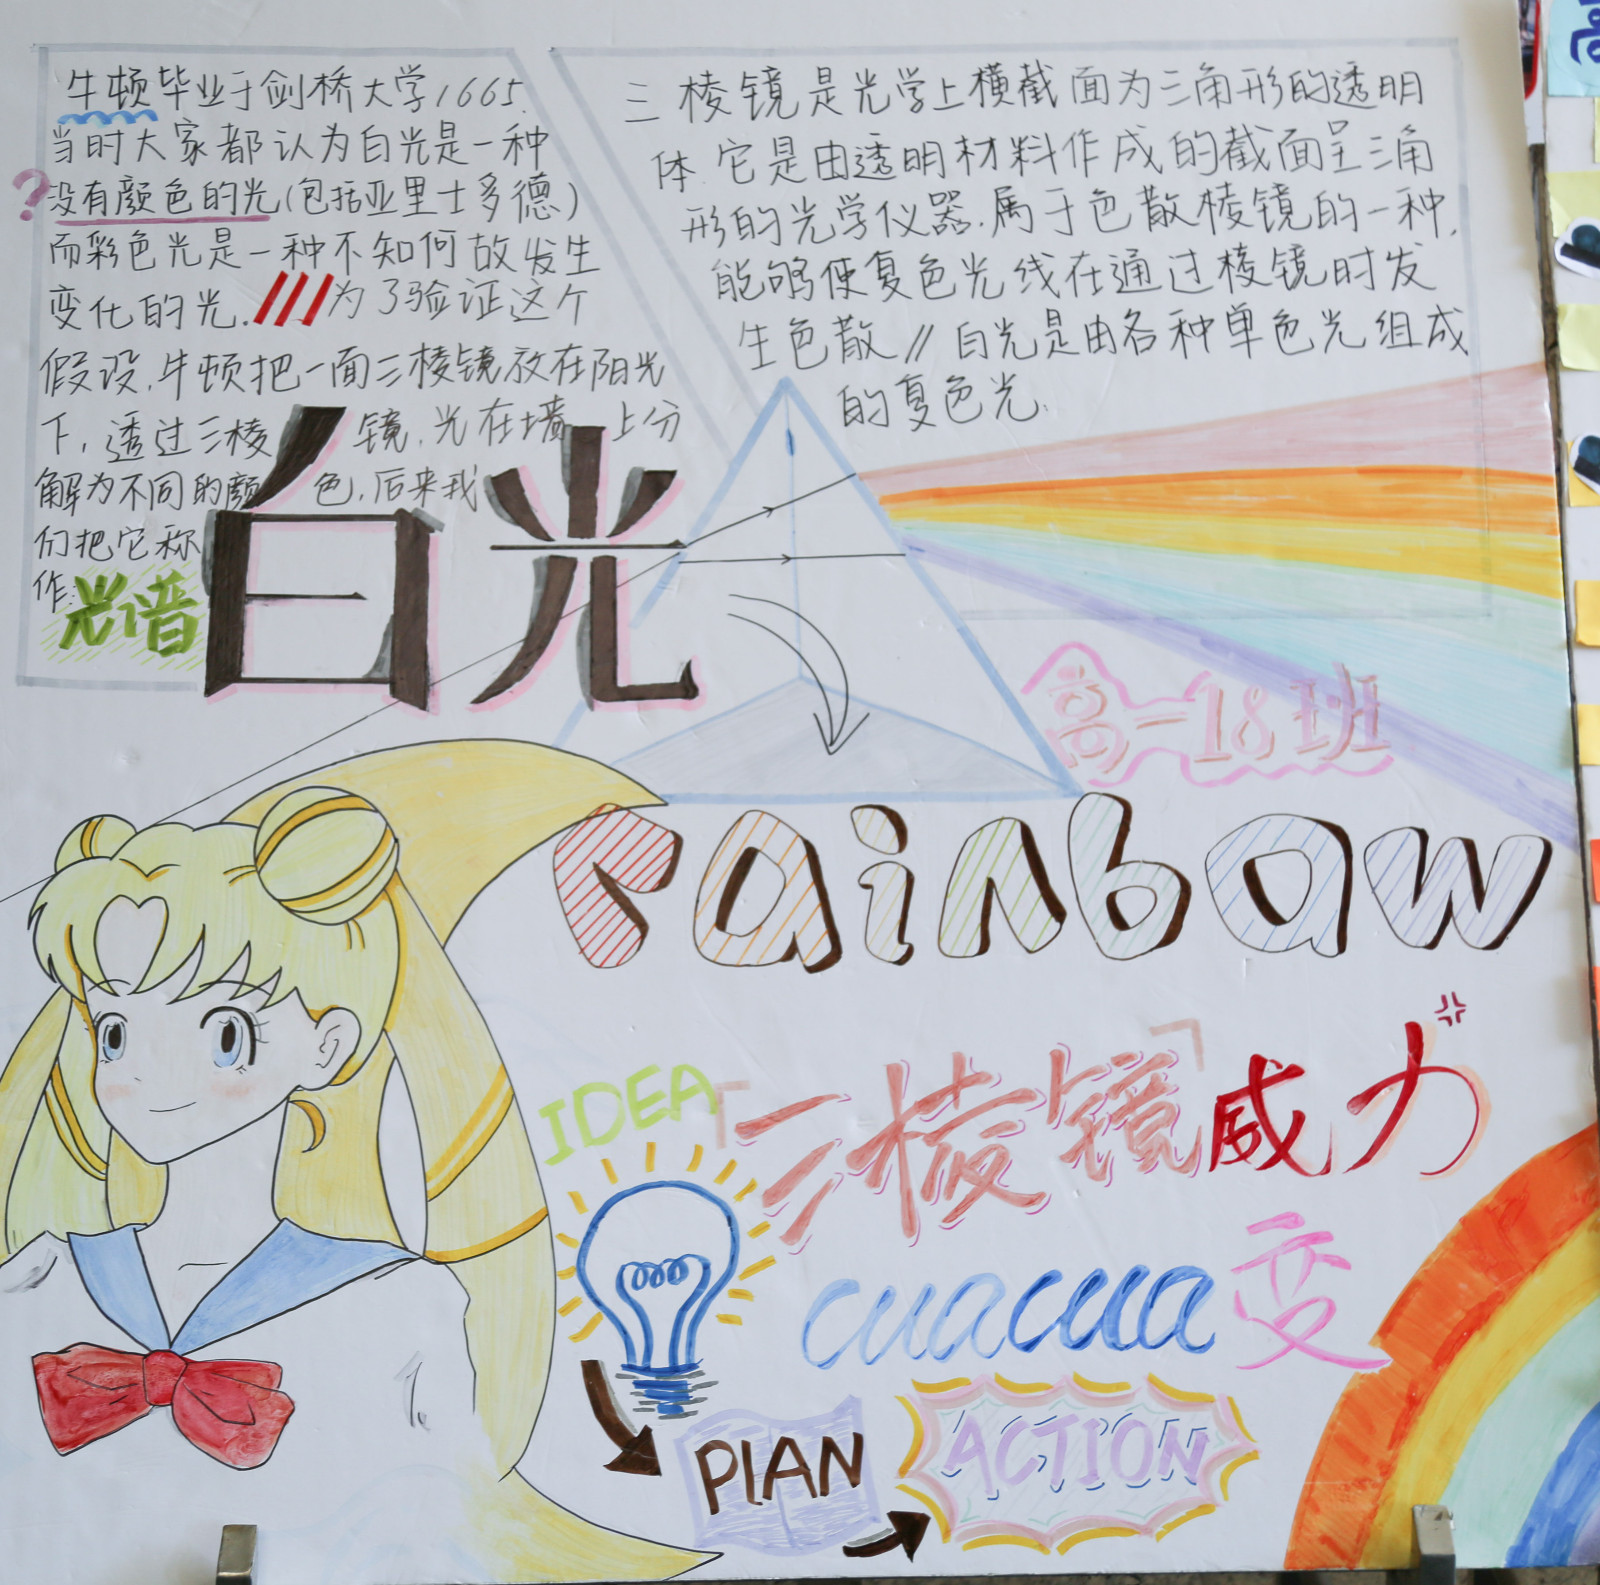 牛顿毕业于剑桥大学1665.
当时大家都认为白光是一种
?没有颜色的光(包括亚里士多德)
而彩色光是一种不知何故发生
变化的光.///为了验证这个
假设,牛顿把一面三棱镜放在阳光
下,透过三棱镜,光在墙上分
解为不同的颜色,后来我
们把它称
作:光谱
三棱镜是光学上横截面为三角形的透明
体.它是由透明材料作成的截面呈三角
形的光学仪器.属于色散棱镜的一种,
能够使复色光线在通过棱镜时发
生色散//白光是由各种单色光组成
的复色光.
白光
高一18班
rainbow
IDEA
「三棱镜」威力
cuacua变
PLAN
ACTION